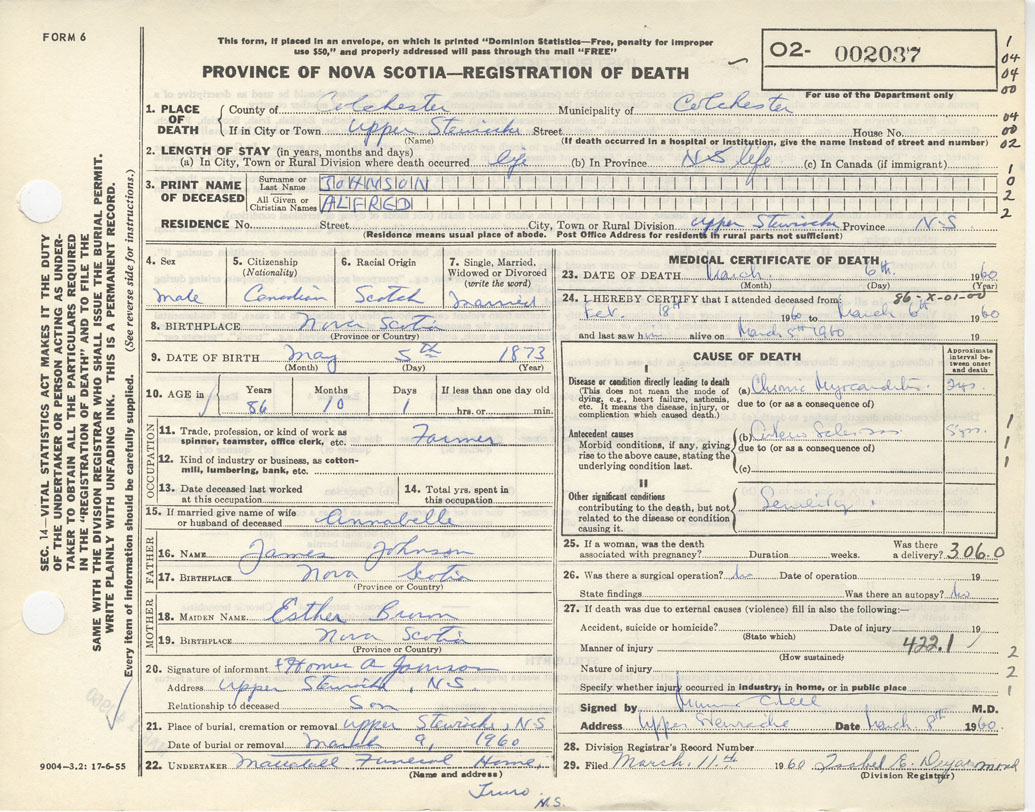 FORM 6
This form, if placed in an envelope, on which is printed "Dominion Statistics—Free, penalty for improper
use $50," and properly addressed will pass through the mail "FREE"
O2- 002037
PROVINCE OF NOVA SCOTIA—REGISTRATION OF DEATH
For use of the Department only
1
04
04
00
04
00
02
1
0
2
2
1. PLACE OF DEATH { County of Colchester Municipality of Colchester
If in City or Town Upper Stewiacke Street House No.
(Name) (If death occurred in a hospital or institution, give the name instead of street and number)
2. LENGTH OF STAY (in years, months and days)
(a) In City, Town or Rural Division where death occurred life (b) In Province NS life (c) In Canada (if immigrant)
3. PRINT NAME OF DECEASED
Surname or Last Name JOHNSON
All Given or Christian Names ALFRED
RESIDENCE No. Street City, Town or Rural Division Upper Stewiacke Province N-S
(Residence means usual place of abode. Post Office Address for residents in rural parts not sufficient)
4. Sex male
5. Citizenship (Nationality) Canadian
6. Racial Origin Scotch
7. Single, Married, Widowed or Divorced (write the word) Married
8. BIRTHPLACE Nova Scotia
(Province or Country)
9. DATE OF BIRTH May 5th 1873
(Month) (Day) (Year)
10. AGE in Years 86 Months 10 Days 1 If less than one day old hrs. or min.
OCCUPATION
11. Trade, profession, or kind of work as spinner, teamster, office clerk, etc. Farmer
12. Kind of industry or business, as cotton-mill, lumbering, bank, etc.
13. Date deceased last worked at this occupation
14. Total yrs. spent in this occupation
15. If married give name of wife or husband of deceased Annabelle
FATHER
16. NAME James Johnson
17. BIRTHPLACE Nova Scotia
(Province or Country)
MOTHER
18. MAIDEN NAME Esther Brown
19. BIRTHPLACE Nova Scotia
(Province or Country)
20. Signature of informant Homer A Johnson
Address Upper Stewiacke, N.S.
Relationship to deceased Son
21. Place of burial, cremation or removal Upper Stewiacke, N.S
Date of burial or removal March 9, 1960
22. UNDERTAKER Funeral Home,
(Name and address)
Truro
N.S.
MEDICAL CERTIFICATE OF DEATH
23. DATE OF DEATH March 6th 1960
(Month) (Day) (Year)
86-X-01-00
24. I HEREBY CERTIFY that I attended deceased from
Feb. 18th 1960 to March 6th 1960
and last saw him alive on March 5th 1960
CAUSE OF DEATH
Approximate interval between onset and death
I
Disease or condition directly leading to death
(This does not mean the mode of dying, e.g., heart failure, asthenia, etc. It means the disease, injury, or complication which caused death.)
(a) Chronic Myocarditis 2 yrs.
due to (or as a consequence of)
Antecedent causes
Morbid conditions, if any, giving rise to the above cause, stating the underlying condition last.
(b) Arterio Sclerosis 5 yrs.
due to (or as a consequence of)
(c)
1
1
1
II
Other significant conditions
contributing to the death, but not related to the disease or condition causing it.
Senility.
25. If a woman, was the death associated with pregnancy? Duration weeks. Was there a delivery?
306.0
26. Was there a surgical operation? No Date of operation 19
State findings Was there an autopsy? No
27. If death was due to external causes (violence) fill in also the following:—
Accident, suicide or homicide? Date of injury 19
(State which)
422.1
Manner of injury
(How sustained)
Nature of injury
Specify whether injury occurred in industry, in home, or in public place
2
2
1
Signed by M.D.
Address Upper Stewiacke Date March 8th 1960.
28. Division Registrar's Record Number
29. Filed March. 11th 1960 Isabel E. Deyarmond
(Division Registrar)
SEC. 14—VITAL STATISTICS ACT MAKES IT THE DUTY
OF THE UNDERTAKER OR PERSON ACTING AS UNDER-
TAKER TO OBTAIN ALL THE PARTICULARS REQUIRED
IN THE "REGISTRATION OF DEATH" AND TO FILE THE
SAME WITH THE DIVISION REGISTRAR WHO SHALL ISSUE THE BURIAL PERMIT.
WRITE PLAINLY WITH UNFADING INK. THIS IS A PERMANENT RECORD.
Every item of information should be carefully supplied. (See reverse side for instructions.)
9004—3.2: 17-6-55